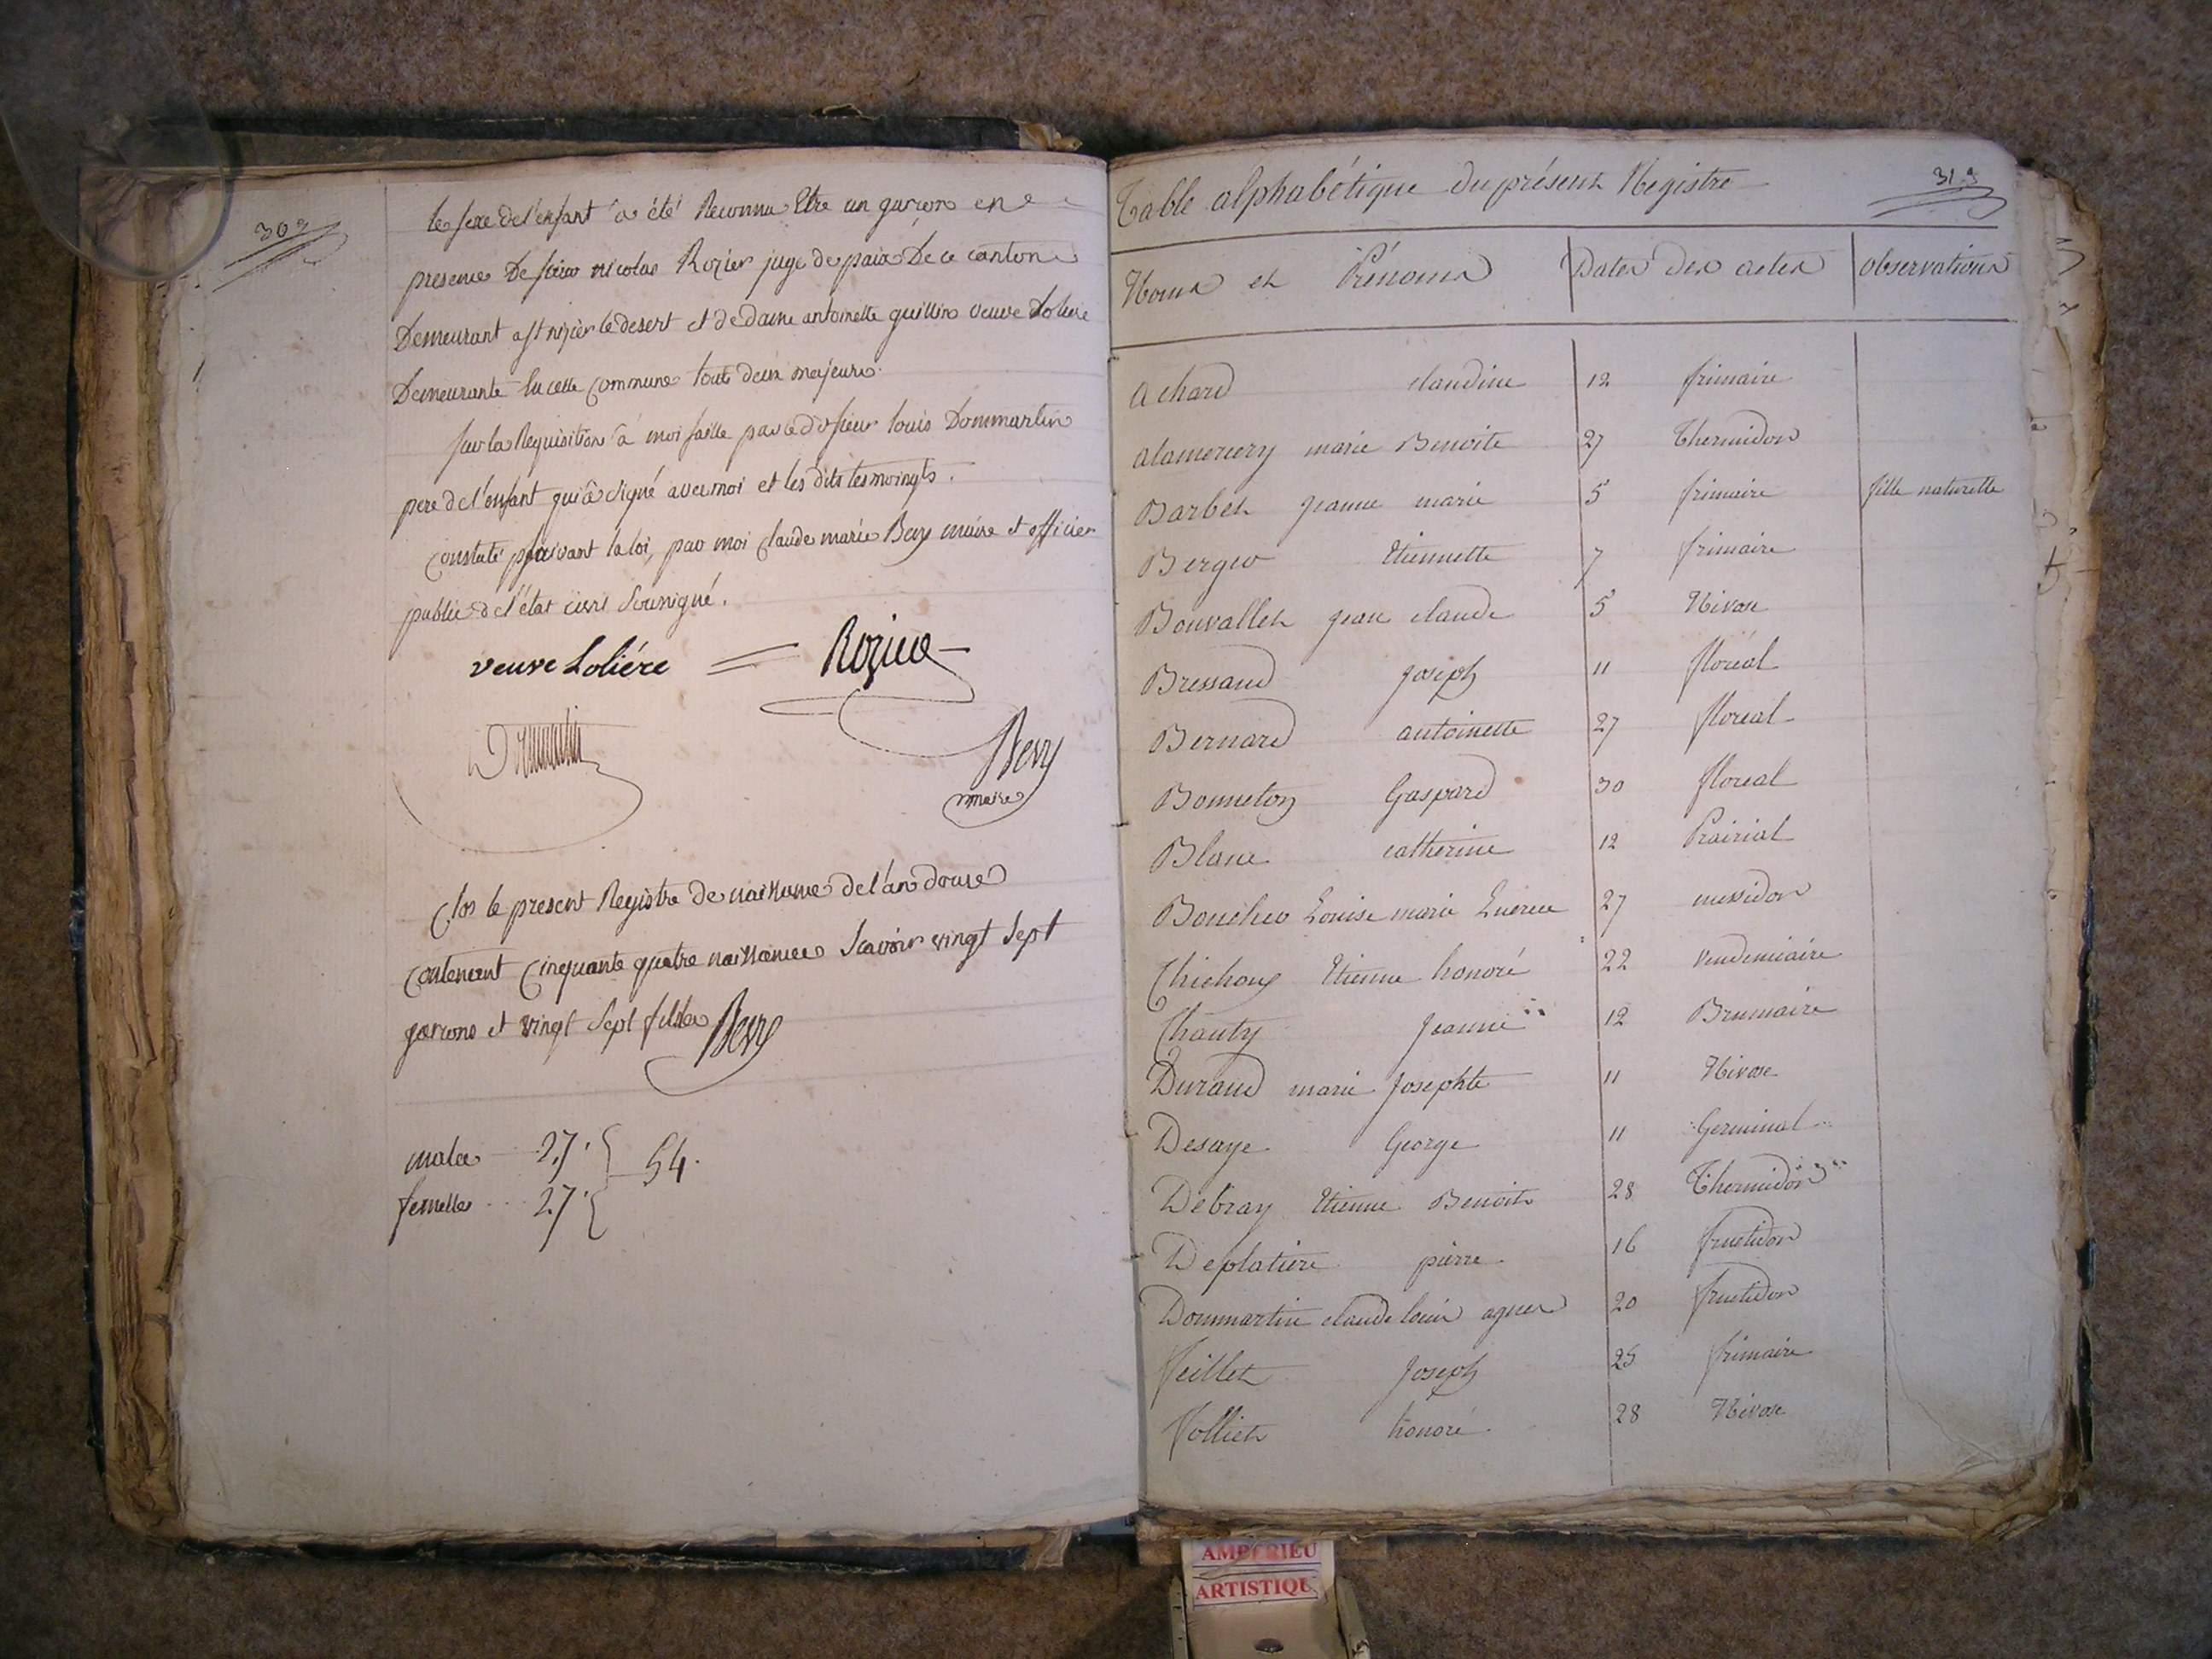 309
le sexe de l'enfant a été Reconnu Etre un garcon en
presence De sieur nicolas Rozier juge de paix De ce canton
Demeurant a st nizier le desert et de dame antoinette guillin veuve Loliere
Demeurante Sur cette commune touts deux majeurs.
sur la Requisition a moi faitte par le dt sieur louis Dommartin
pere de l'enfant qui a signé avec moi et les dits tesmoingts.
Constaté suivant la loi, par moi claude marie Bevy maire et officier
public de l'état civil Sousigné.
veuve Loliére = Rozier
Dommartin
Bevy
maire
Clos le present Registre de naissance de l'an douze
Contenant Cinquante quatre naissances Scavoir vingt Sept
garcons et vingt Sept filles Bevy
males 27
54.
femelles 27
31.9
Table alphabétique du présent Registre
Noms et Prénoms Dates des actes observations
achard claudine 12 frimaire
alamercery marie Benoite 27 Thermidor
Barbet jeanne marie 5 frimaire fille naturelle
Berger Etiennette 7 frimaire
Bouvallet jean claude 5 Nivose
Bressand joseph 11 floréal
Bernard antoinette 27 floreal
Bonneton Gaspard 30 floreal
Blanc catherine 12 Prairial
Boucher Louise marie Lucrece 27 messidor
Chichoux Etienne honoré 22 vendemiaire
Chanty jeanne 12 Brumaire
Durand marie josephte 11 Nivose
Desaye George 11 Germinal
Debray Etienne Benoit 28 Thermidor
Deplatiere pierre 16 fructidor
Dommartin claude louis agnes 20 fructidor
feillet joseph 25 frimaire
folliet honoré 28 Nivose
AMBERIEU
ARTISTIQUE